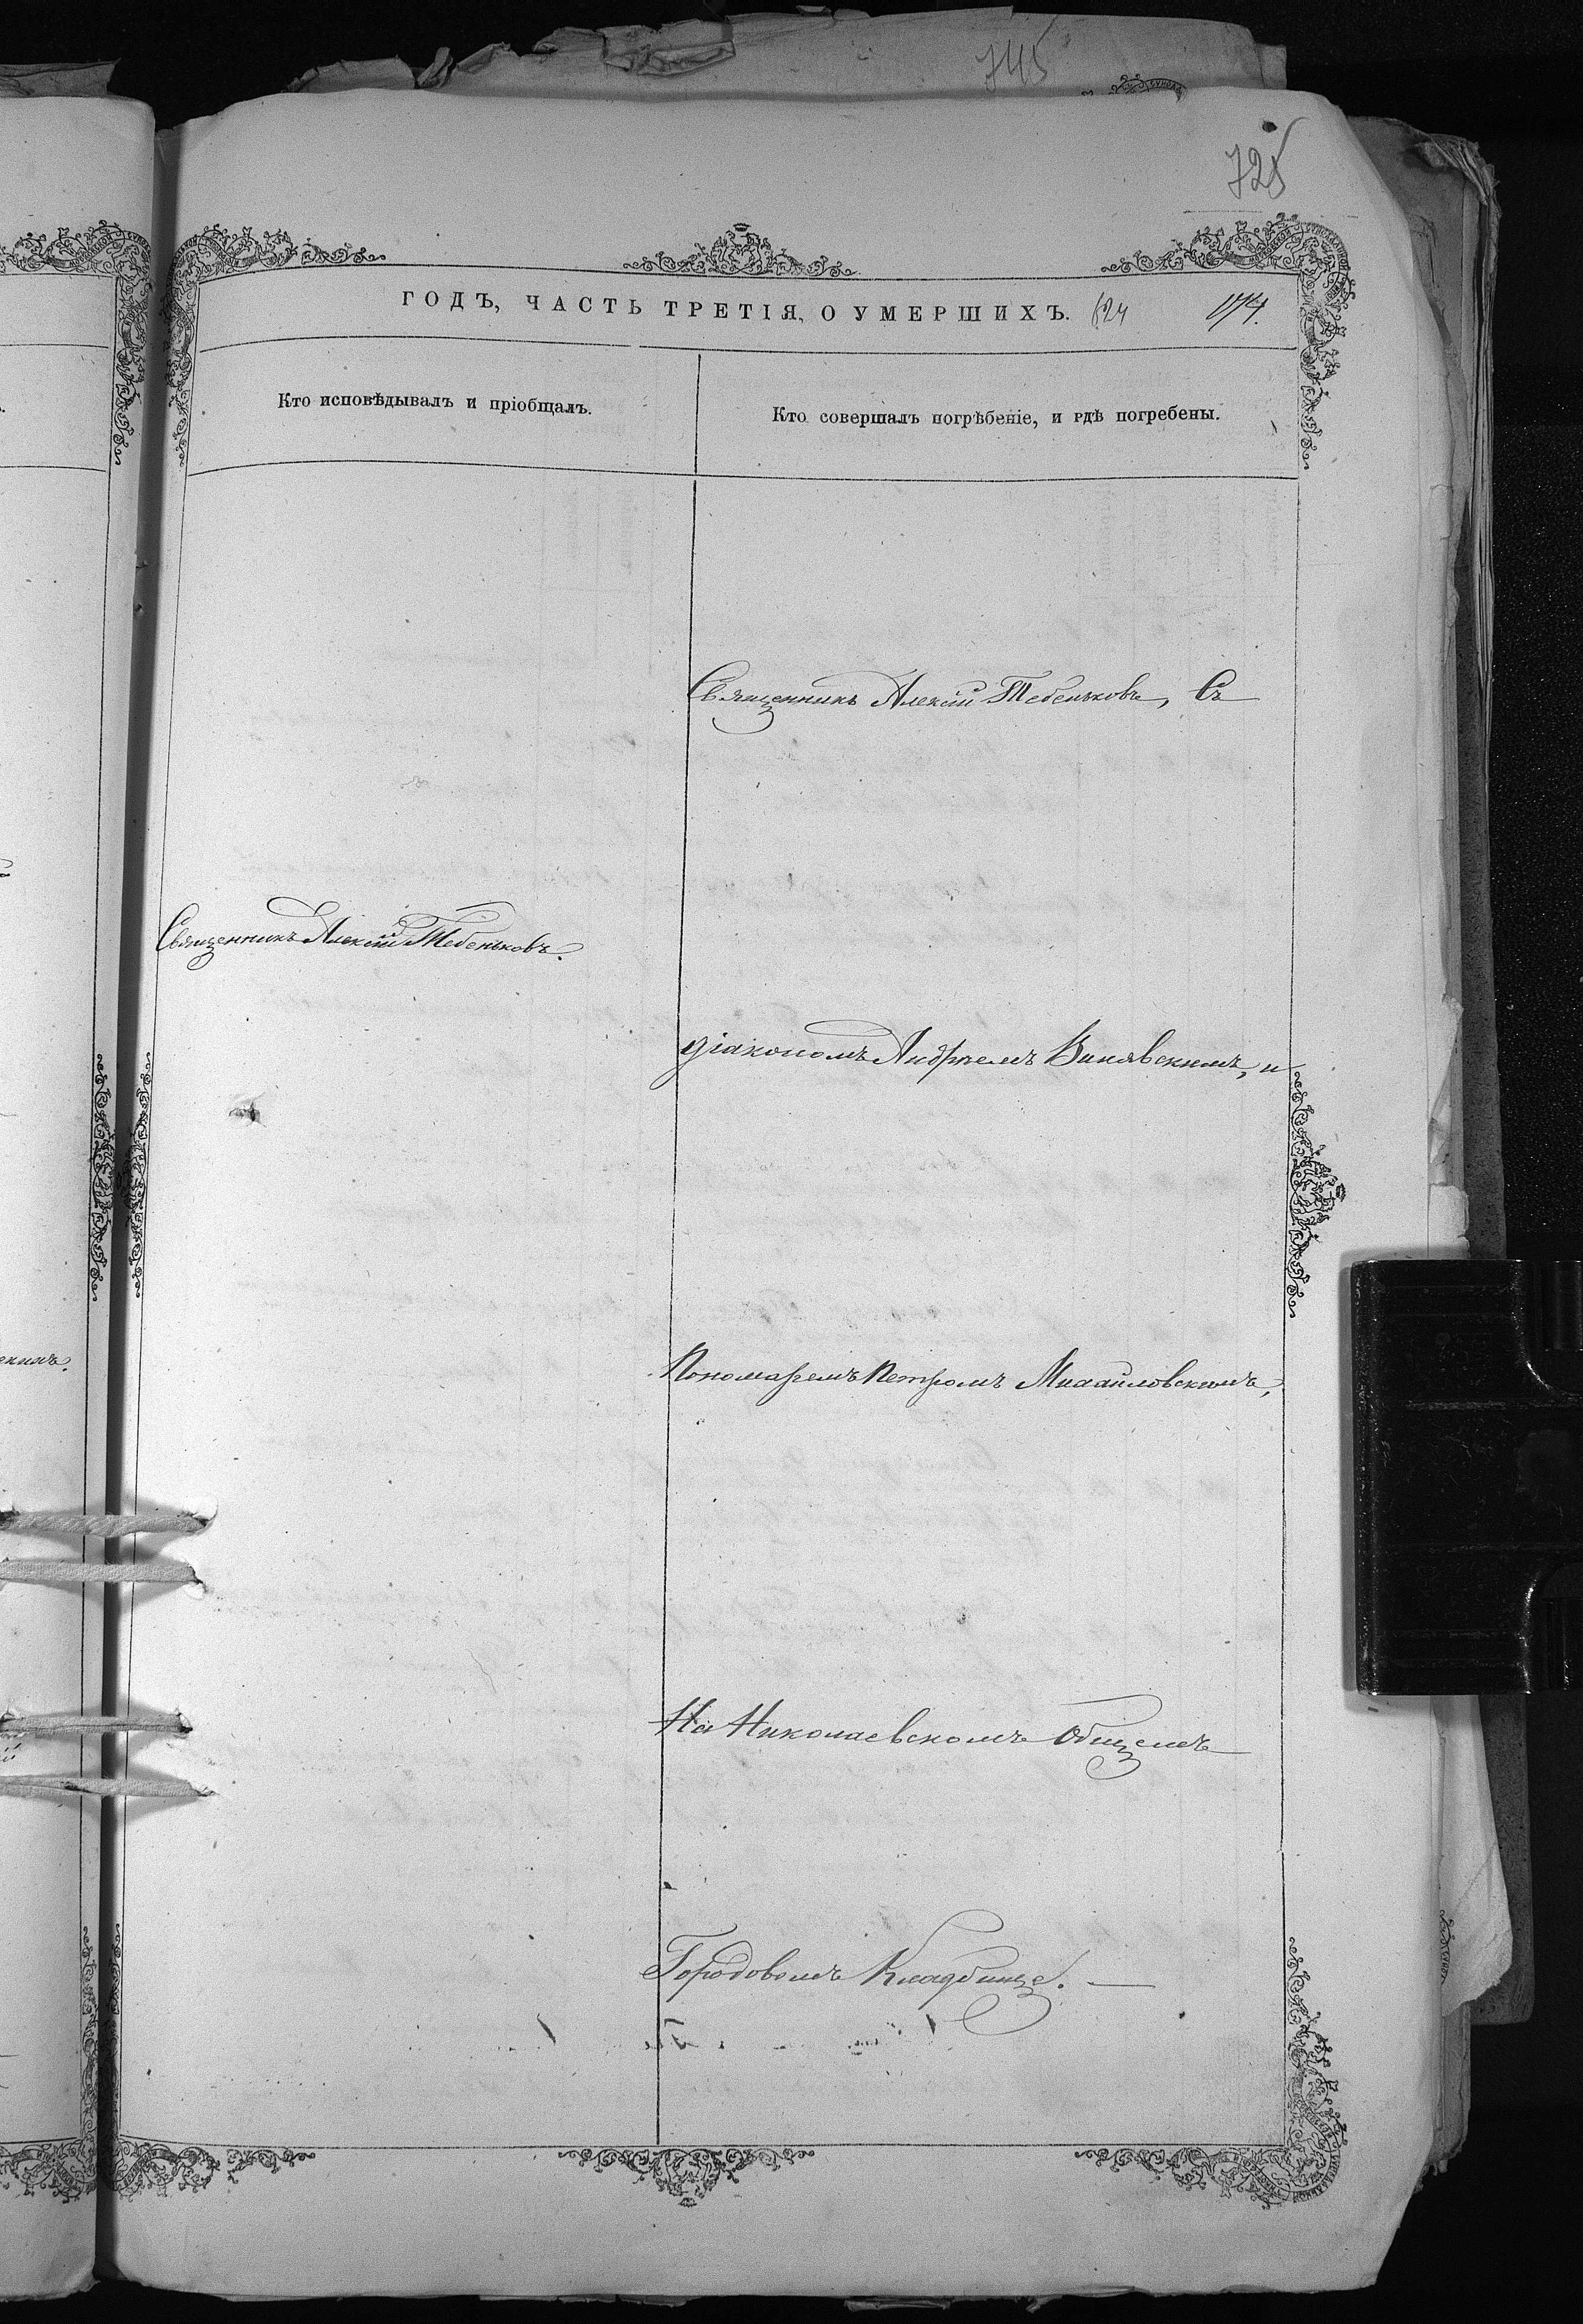 745
725
ГОДЪ, ЧАСТЬ ТРЕТІЯ, О УМЕРШИХЪ. 624 174.
Кто исповѣдывалъ и пріобщалъ.
Кто совершалъ погрѣбеніе, и гдѣ погребены.
Священникъ Алексій Тебеньковъ, Съ
Священникъ Алексій Тебеньковъ.
діакономъ Андреемъ Винявскимъ, и
Пономаремъ Петромъ Михайловскимъ,
На Николаевскомъ Общемъ
Городовомъ Кладбище.